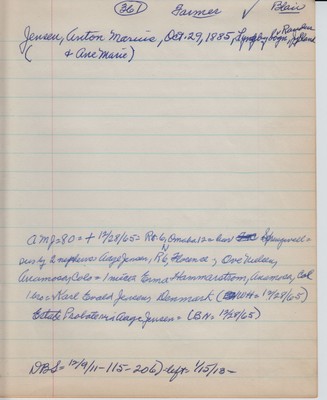 361 Farmer ✓ Blair
Jensen, Anton Marius, Oct. 29, 1885, Lyngby Sogn, Randers Jylland
( & Ane Marie)
AMJ=80=+ 12/28/65= Rt. 6, Omaha 12= bur Springwell=
surv by 2 nephews Aage Jensen, Rt 6, N Florence; Ove
Anamosa, Colo= 1 niece Erna Hammarstrom, Anamosa, Col
1 bro= Karl Evald Jensen, Denmark (WH= 12/28/65)
Estate Probate via Aage Jensen= (BN= 12/28/65)
DBS= 12/9/11-115-206)-left= 1/15/13-